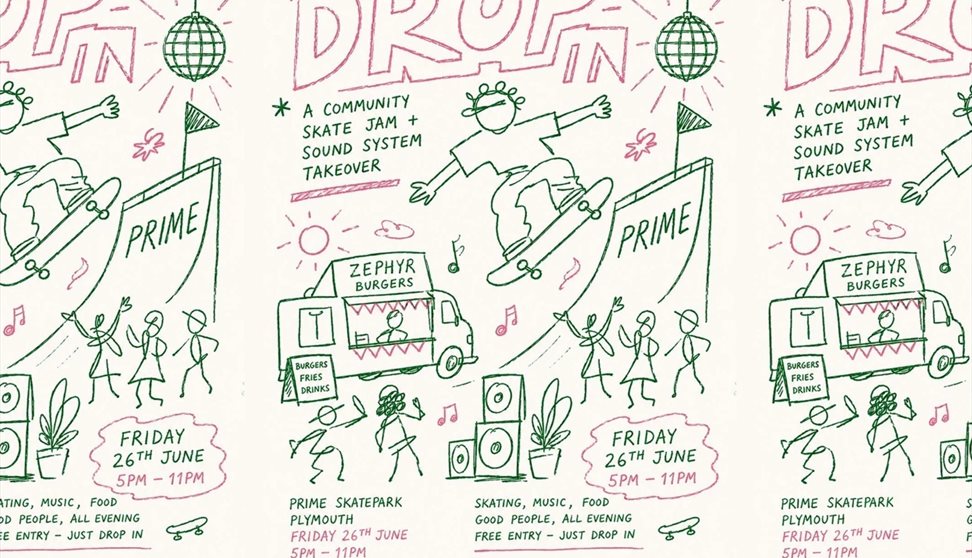 IN
PRIME
FRIDAY
26TH JUNE
5PM – 11PM
ATING, MUSIC, FOOD
OD PEOPLE, ALL EVENING
REE ENTRY – JUST DROP IN
DROP
IN
* A COMMUNITY
SKATE JAM +
SOUND SYSTEM
TAKEOVER
PRIME
ZEPHYR
BURGERS
BURGERS
FRIES
DRINKS
FRIDAY
26TH JUNE
5PM – 11PM
PRIME SKATEPARK
PLYMOUTH
FRIDAY 26TH JUNE
5PM – 11PM
SKATING, MUSIC, FOOD
GOOD PEOPLE, ALL EVENING
FREE ENTRY – JUST DROP IN
* A COMMUNITY
SKATE JAM +
SOUND SYSTEM
TAKEOVER
ZEPHYR
BURGERS
BURGERS
FRIES
DRINKS
PRIME SKATEPARK
PLYMOUTH
FRIDAY 26TH JUNE
5PM – 11PM